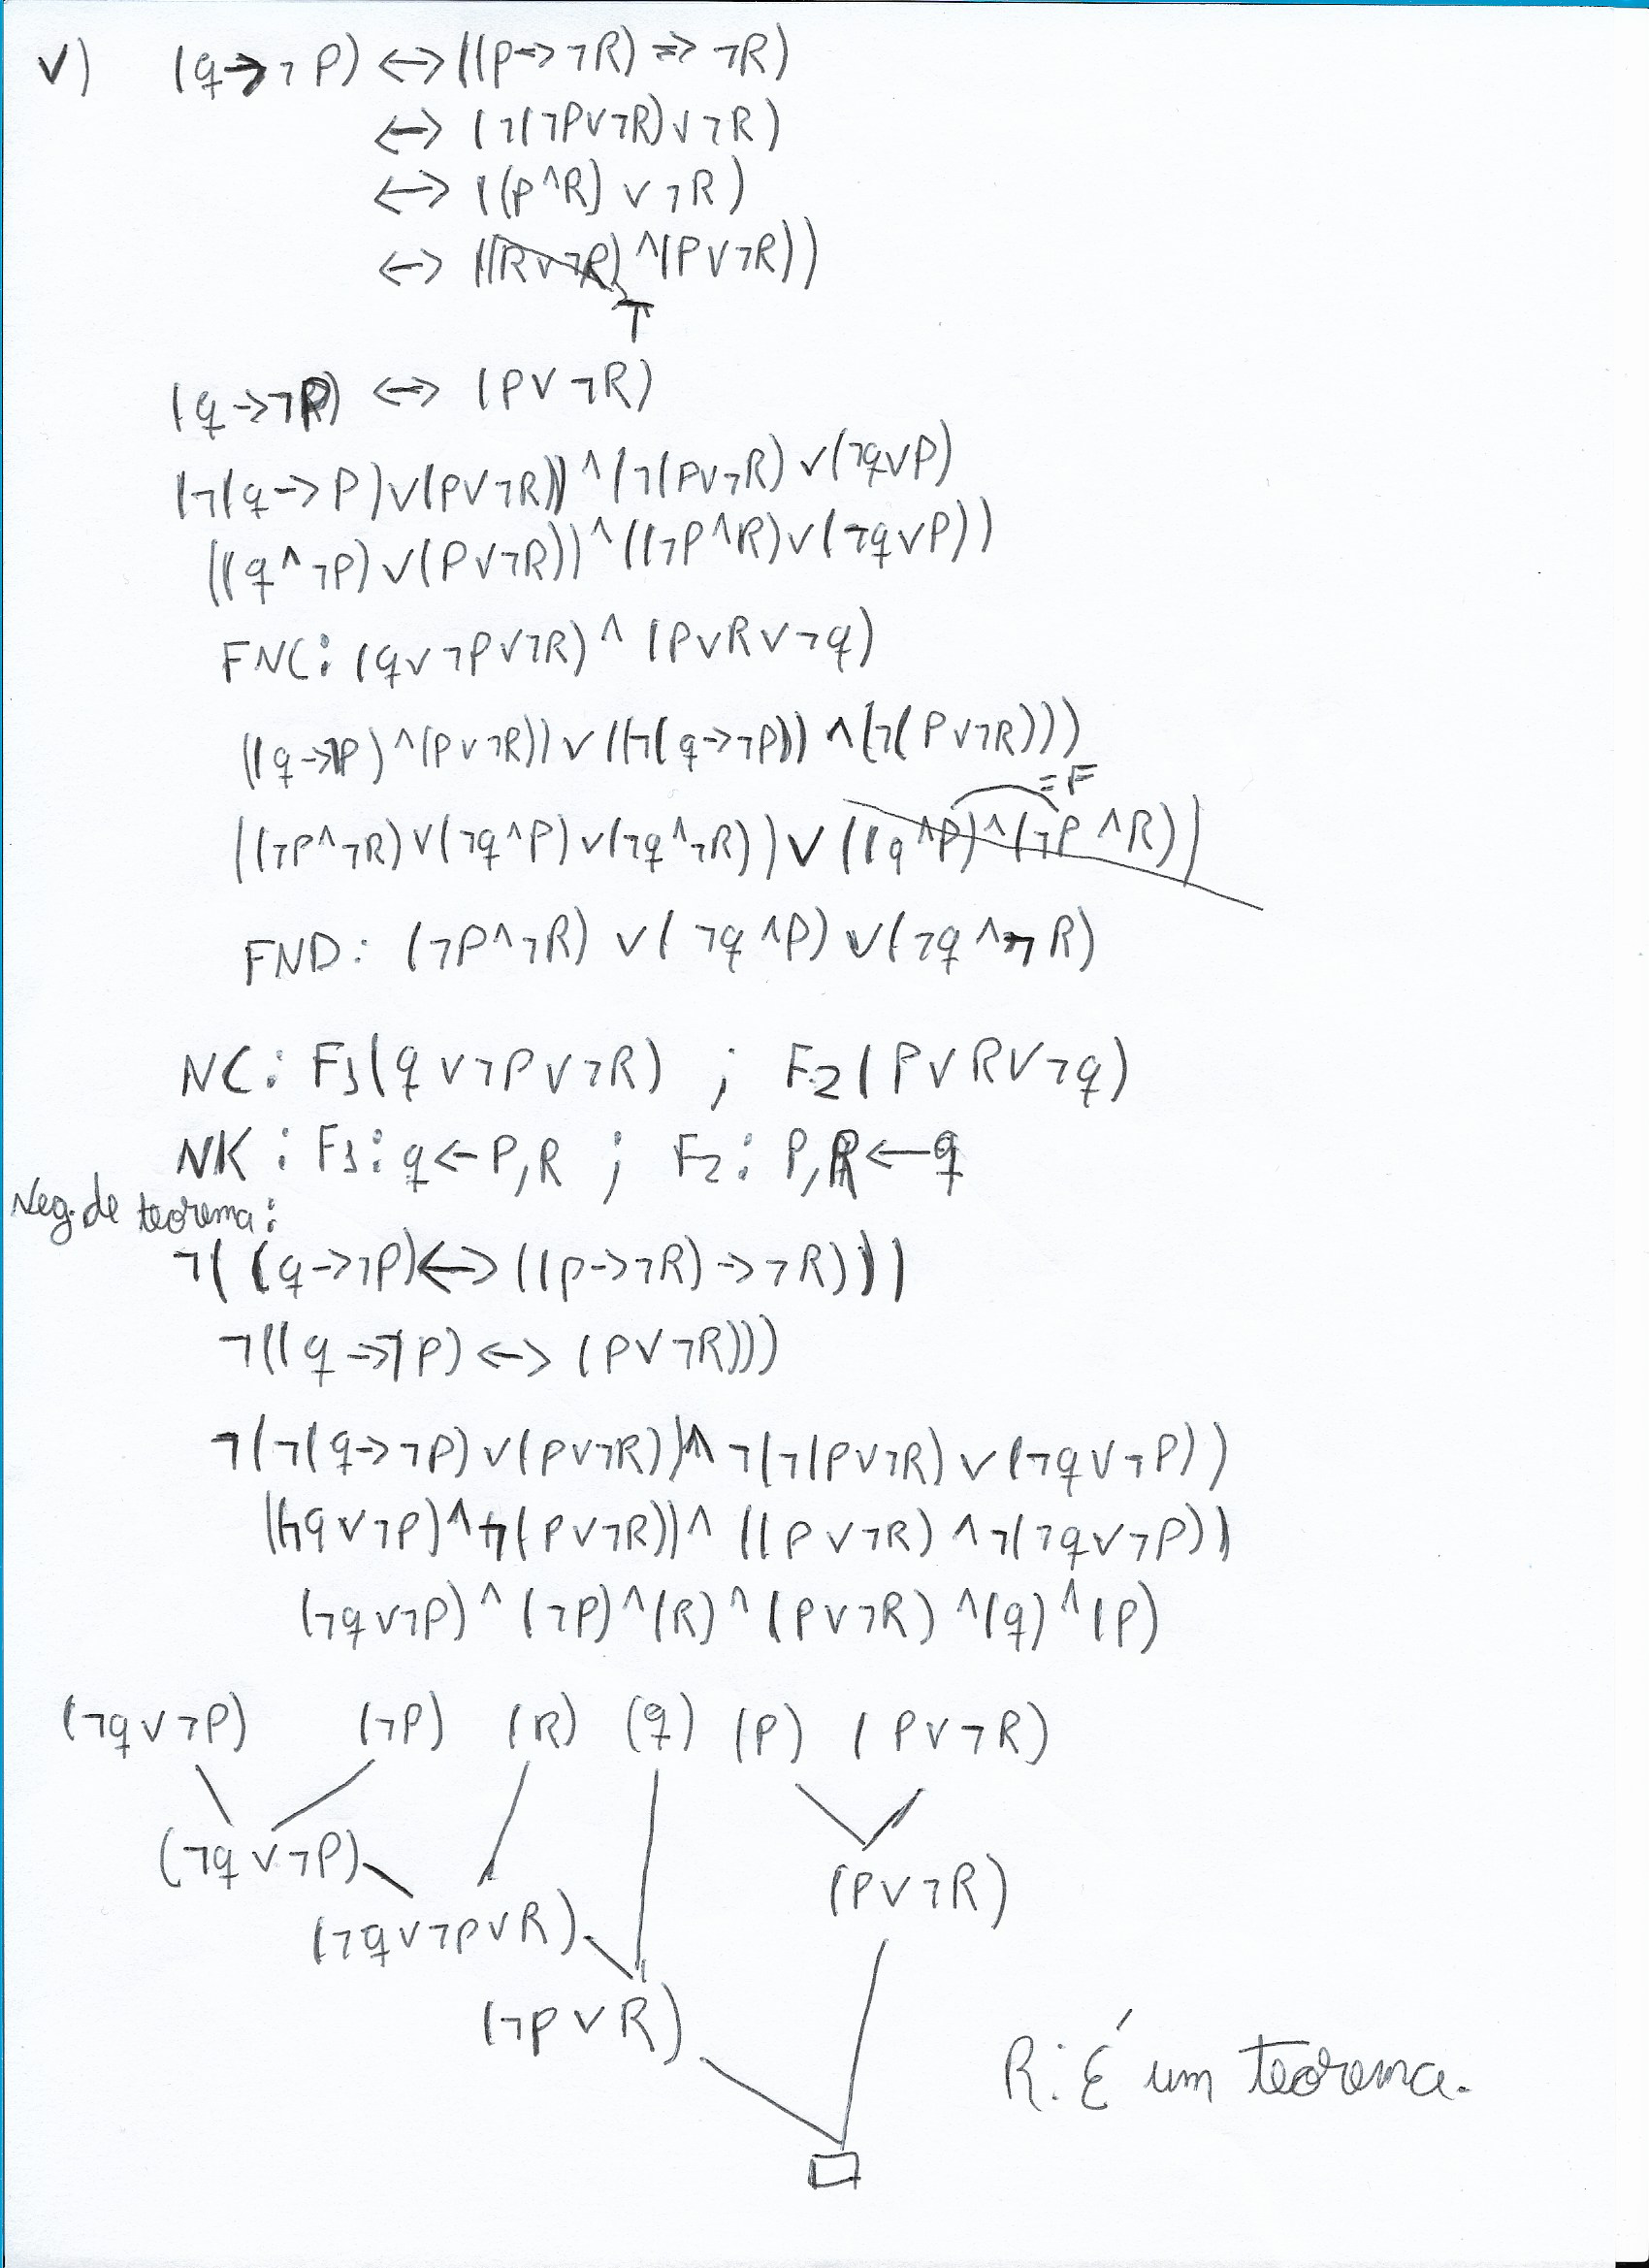 V) (q→¬P) ↔ ((p→¬R) => ¬R)
↔ (¬(¬P∨¬R)∨¬R)
↔ ((p^R) ∨ ¬R)
↔ ((R∨¬R)^(P∨¬R))
T
(q→¬P) ↔ (P∨¬R)
(¬(q→P)∨(P∨¬R))^(¬(P∨¬R)∨(¬q∨P)
((q^¬P)∨(P∨¬R))^((¬P^R)∨(¬q∨P))
FNC: (q∨¬P∨¬R)^(P∨R∨¬q)
((q→¬P)^(P∨¬R))∨((¬(q→¬P))∧(¬(P∨¬R)))
=F
((¬P^¬R)∨(¬q^P)∨(¬q^¬R))∨((q^P)^(¬P^R))
FND: (¬P^¬R) ∨(¬q^P) ∨(¬q^¬R)
NC: F1(q∨¬P∨¬R) ; F2(P∨R∨¬q)
NK: F1: q←P,R ; F2: P,R←q
Neg. de teorema:
¬((q→¬P)↔((p→¬R)→¬R)))
¬((q→¬P)↔(P∨¬R)))
¬(¬(q→¬P)∨(P∨¬R))∧¬(¬(P∨¬R)∨(¬q∨¬P))
((¬q∨¬P)^¬(P∨¬R))^((P∨¬R)^¬(¬q∨¬P))
(¬q∨¬P)^(¬P)^(R)^(P∨¬R)^(q)^(P)
(¬q∨¬P) (¬P) (R) (q) (P) (P∨¬R)
(¬q∨¬P)
(P∨¬R)
(¬q∨¬P∨R)
(¬P∨R)
R: É um teorema.